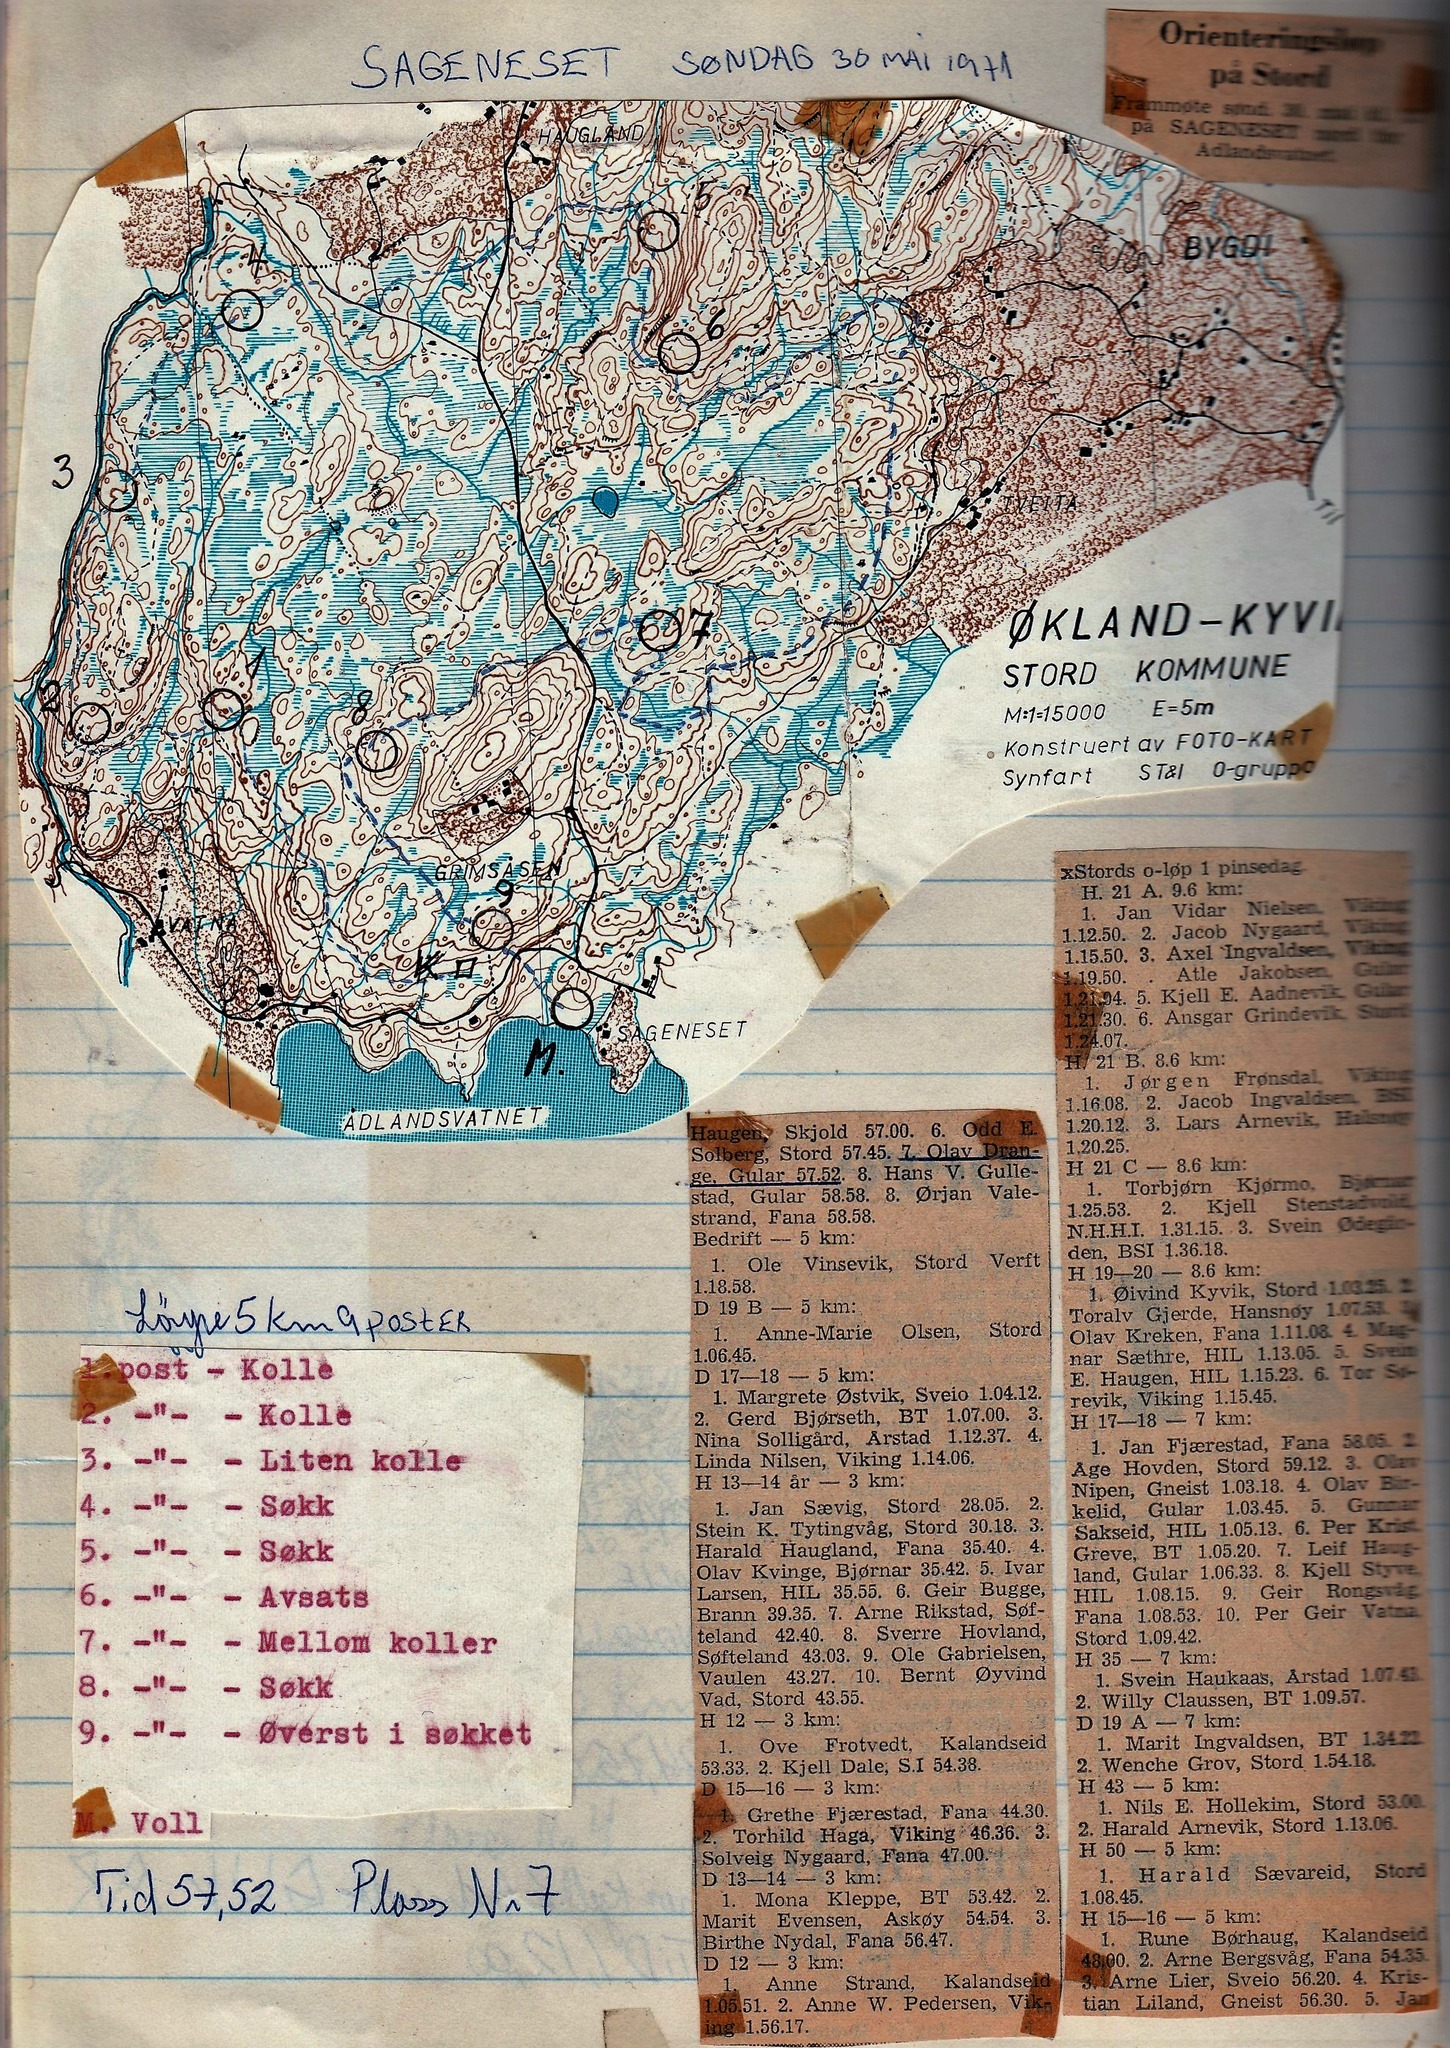 SAGENESET SØNDAG 30 MAI 1971
Orienteringsløp
på Stord
Frammøte sønd. 30. mai
på SAGENESET
Adlandsvatnet
HAUGLAND
BYGDI
5
4
6
3
TVEITA
7
1
2
8
ØKLAND-KYVI
STORD KOMMUNE
M:1:15000 E=5m
Konstruert av FOTO-KART
Synfart ST&I O-gruppe
GRIMSÅSEN
9
VATNA
K
SAGENESET
M.
ÅDLANDSVATNET
Løype 5 km 9 POSTER
1.post - Kolle
2. -"- - Kolle
3. -"- - Liten kolle
4. -"- - Søkk
5. -"- - Søkk
6. -"- - Avsats
7. -"- - Mellom koller
8. -"- - Søkk
9. -"- - Øverst i søkket
M. Voll
Tid 57,52 Plass Nr 7
xStords o-løp 1 pinsedag.
H. 21 A. 9.6 km:
1. Jan Vidar Nielsen, Viking
1.12.50. 2. Jacob Nygaard, Viking
1.15.50. 3. Axel Ingvaldsen, Viking
1.19.50. . Atle Jakobsen, Gular
1.21.94. 5. Kjell E. Aadnevik, Gular
1.21.30. 6. Ansgar Grindevik, Stord
1.24.07.
H. 21 B. 8.6 km:
1. Jørgen Frønsdal, Viking
1.16.08. 2. Jacob Ingvaldsen, BSI
1.20.12. 3. Lars Arnevik, Halsnøy
1.20.25.
H 21 C — 8.6 km:
1. Torbjørn Kjørmo, Bjørnar
1.25.53. 2. Kjell Stenstadvold,
N.H.H.I. 1.31.15. 3. Svein Ødegår-
den, BSI 1.36.18.
H 19—20 — 8.6 km:
1. Øivind Kyvik, Stord 1.03.25. 2.
Toralv Gjerde, Hansnøy 1.07.53. 3.
Olav Kreken, Fana 1.11.08. 4. Mag-
nar Sæthre, HIL 1.13.05. 5. Svein
E. Haugen, HIL 1.15.23. 6. Tor Sø-
revik, Viking 1.15.45.
H 17—18 — 7 km:
1. Jan Fjærestad, Fana 58.05. 2.
Åge Hovden, Stord 59.12. 3. Olav
Nipen, Gneist 1.03.18. 4. Olav Bir-
kelid, Gular 1.03.45. 5. Gunnar
Sakseid, HIL 1.05.13. 6. Per Krist.
Greve, BT 1.05.20. 7. Leif Haug-
land, Gular 1.06.33. 8. Kjell Styve,
HIL 1.08.15. 9. Geir Rongsvåg,
Fana 1.08.53. 10. Per Geir Vatna,
Stord 1.09.42.
H 35 — 7 km:
1. Svein Haukaas, Årstad 1.07.43.
2. Willy Claussen, BT 1.09.57.
D 19 A — 7 km:
1. Marit Ingvaldsen, BT 1.34.22.
2. Wenche Grov, Stord 1.54.18.
H 43 — 5 km:
1. Nils E. Hollekim, Stord 53.00.
2. Harald Arnevik, Stord 1.13.06.
H 50 — 5 km:
1. Harald Sævareid, Stord
1.08.45.
H 15—16 — 5 km:
1. Rune Børhaug, Kalandseid
48.00. 2. Arne Bergsvåg, Fana 54.35.
3. Arne Lier, Sveio 56.20. 4. Kris-
tian Liland, Gneist 56.30. 5. Jan
Haugen, Skjold 57.00. 6. Odd E.
Solberg, Stord 57.45. 7. Olav Dran-
ge, Gular 57.52. 8. Hans V. Gulle-
stad, Gular 58.58. 8. Ørjan Vale-
strand, Fana 58.58.
Bedrift — 5 km:
1. Ole Vinsevik, Stord Verft
1.18.58.
D 19 B — 5 km:
1. Anne-Marie Olsen, Stord
1.06.45.
D 17—18 — 5 km:
1. Margrete Østvik, Sveio 1.04.12.
2. Gerd Bjørseth, BT 1.07.00. 3.
Nina Solligård, Årstad 1.12.37. 4.
Linda Nilsen, Viking 1.14.06.
H 13—14 år — 3 km:
1. Jan Sævig, Stord 28.05. 2.
Stein K. Tytingvåg, Stord 30.18. 3.
Harald Haugland, Fana 35.40. 4.
Olav Kvinge, Bjørnar 35.42. 5. Ivar
Larsen, HIL 35.55. 6. Geir Bugge,
Brann 39.35. 7. Arne Rikstad, Søf-
teland 42.40. 8. Sverre Hovland,
Søfteland 43.03. 9. Ole Gabrielsen,
Vaulen 43.27. 10. Bernt Øyvind
Vad, Stord 43.55.
H 12 — 3 km:
1. Ove Frotvedt, Kalandseid
53.33. 2. Kjell Dale, S.I 54.38.
D 15—16 — 3 km:
1. Grethe Fjærestad, Fana 44.30.
2. Torhild Haga, Viking 46.36. 3.
Solveig Nygaard, Fana 47.00.
D 13—14 — 3 km:
1. Mona Kleppe, BT 53.42. 2.
Marit Evensen, Askøy 54.54. 3.
Birthe Nydal, Fana 56.47.
D 12 — 3 km:
1. Anne Strand, Kalandseid
1.05.51. 2. Anne W. Pedersen, Vik-
ing 1.56.17.